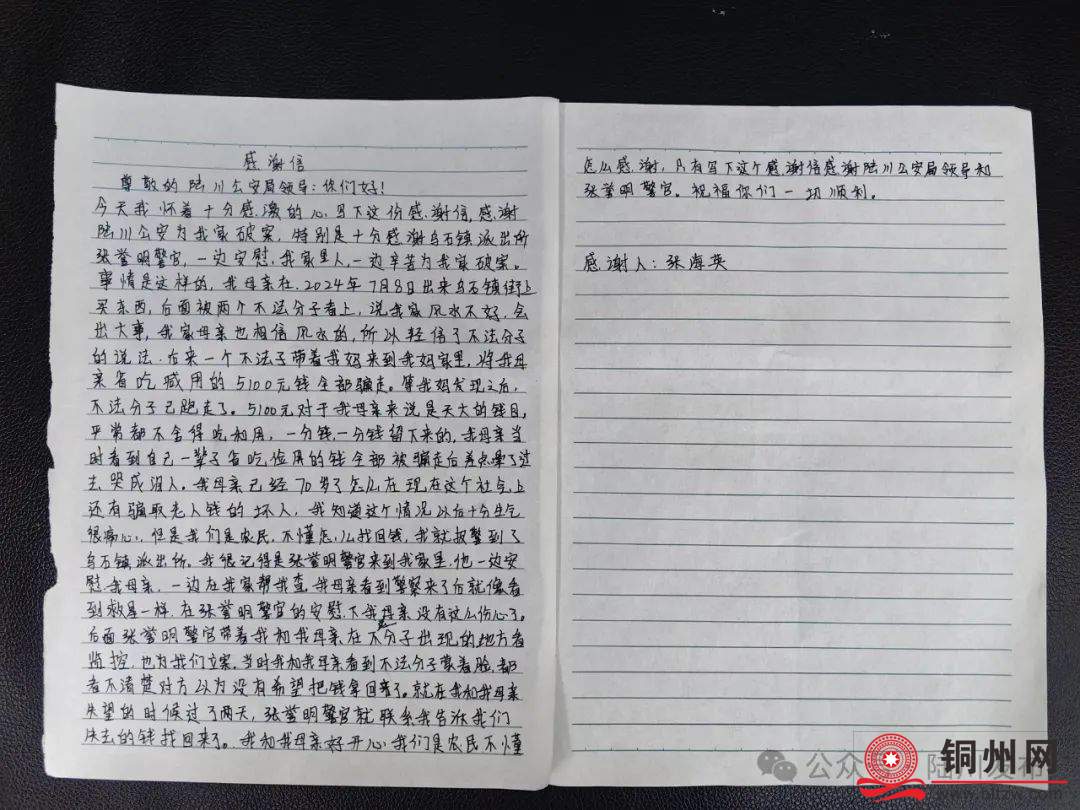 感谢信
尊敬的陆川公安局领导:你们好!
今天我怀着十分感激的心,写下这份感谢信,感谢
陆川公安为我家破案,特别是十分感谢乌石镇派出所
张誉明警官,一边安慰我家里人,一边辛苦为我家破案。
事情是这样的,我母亲在,2024年7月8日出来乌石镇街上
买东西,后面被两个不法分子看上,说我家风水不好,会
出大事,我家母亲也相信风水的,所以轻信了不法分子
的说法.后来一个不法子带着我妈来到我妈家里,将我母
亲省吃咸用的5100元钱全部骗走。等我妈发现之后,
不法分子已跑走了。5100元对于我母亲来说是天大的钱目,
平常都不舍得吃和用,一分钱一分钱留下来的,我母亲当
时看到自己一辈子省吃俭用的钱全部被骗走后差点晕了过
去,哭成泪人。我母亲已经70岁了怎么在现在这个社气上
还有骗取老人钱的坏人,我知道这个情况以后十分生气
很痛心,但是我们是农民,不懂怎么找回钱,我就报警到了
乌石镇派出所。我很记得是张誉明警官来到我家里,他一边安
慰我母亲,一边在我家帮我查,我母亲看到警察来了后就像看
到救星一样,在张誉明警官的安慰下我母亲没有这么伤心了。
后面张誉明警官带着我和我母亲在不分子出现的地方看
监控,也为我们立案,当时我和我母亲看到不法分子蒙着脸,都
看不清楚对方以为没有希望把钱拿回来了。就在我和我母亲
失望的时候过了两天,张誉明警官就联系我告诉我们
失去的钱找回来了。我和我母亲好开心,我们是农民不懂
怎么感谢,只有写下这个感谢信感谢陆川公安局领导和
张誉明警官。祝福你们一切顺利。
感谢人:张海英
公众号
陆川发布
铜州网